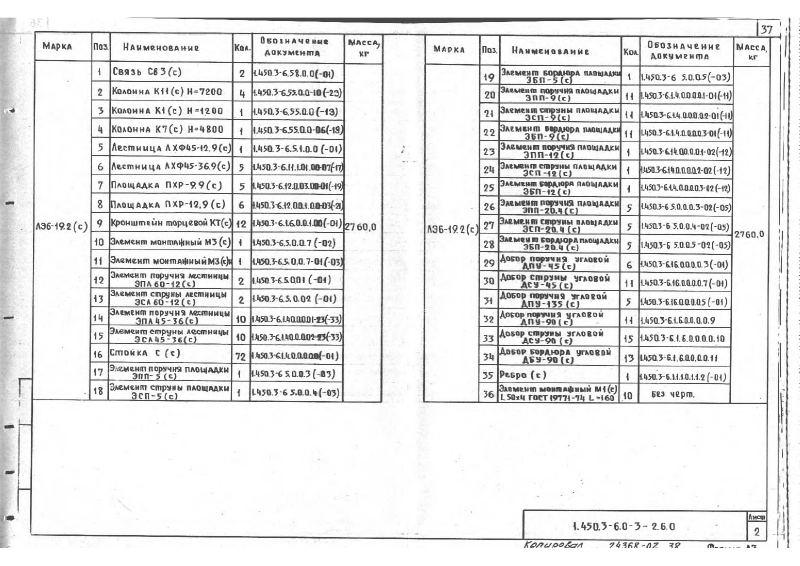 37
Марка Поз. Наименование Кол. Обозначение документа Масса, кг
ЛЭБ-19.2(с) 2760,0
1 Связь СВ3(с) 2 1.450.3-6.5.8.0.0(-01)
2 Колонна К11(с) Н=7200 4 1.450.3-6.5.5.0.0-10(-23)
3 Колонна К1(с) Н=1200 1 1.450.3-6.5.5.0.0(-13)
4 Колонна К7(с) Н=4800 1 1.450.3-6.5.5.0.0-06(-19)
5 Лестница ЛХФ45-12.9(с) 1 1.450.3-6.5.1.0.0(-01)
6 Лестница ЛХФ45-36.9(с) 5 1.450.3-6.1.1.1.01.00-07(-17)
7 Площадка ПХР-9.9(с) 5 1.450.3-6.1.2.0.03.00-01(-19)
8 Площадка ПХР-12.9(с) 6 1.450.3-6.1.2.0.01.00-03(-21)
9 Кронштейн торцевой КТ(с) 12 1.450.3-6.1.6.0.0.1.00(-01)
10 Элемент монтажный М3(с) 1 1.450.3-6.5.0.0.7(-02)
11 Элемент монтажный М3(с)н 1 1.450.3-6.5.0.0.7-01(-03)
12 Элемент поручня лестницы ЭПЛ60-12(с) 2 1.450.3-6.5.0.0.1(-01)
13 Элемент струны лестницы ЭСЛ60-12(с) 2 1.450.3-6.5.0.0.2(-01)
14 Элемент поручня лестницы ЭПЛ45-36(с) 10 1.450.3-6.1.4.0.0.0.01-23(-33)
15 Элемент струны лестницы ЭСЛ45-36(с) 10 1.450.3-6.1.4.0.0.0.02-23(-33)
16 Стойка С(с) 72 1.450.3-6.1.4.0.0.0.20(-01)
17 Элемент поручня площадки ЭПП-5(с) 1 1.450.3-6.5.0.0.3(-03)
18 Элемент струны площадки ЭСП-5(с) 1 1.450.3-6.5.0.0.4(-03)
Марка Поз. Наименование Кол. Обозначение документа Масса, кг
ЛЭБ-19.2(с) 2760,0
19 Элемент бордюра площадки ЭБП-5(с) 1 1.450.3-6 5.0.0.5(-03)
20 Элемент поручня площадки ЭПП-9(с) 11 1.450.3-6.1.4.0.0.0.0.1-01(-11)
21 Элемент струны площадки ЭСП-9(с) 11 1.450.3-6.1.4.0.0.0.0.2-01(-11)
22 Элемент бордюра площадки ЭБП-9(с) 11 1.450.3-6.1.4.0.0.0.0.3-01(-11)
23 Элемент поручня площадки ЭПП-12(с) 1 1.450.3-6.1.4.0.0.0.0.1-02(-12)
24 Элемент струны площадки ЭСП-12(с) 1 1.450.3-6.1.4.0.0.0.0.2-02(-12)
25 Элемент бордюра площадки ЭБП-12(с) 1 1.450.3-6.1.4.0.0.0.0.3-02(-12)
26 Элемент поручня площадки ЭПП-20.4(с) 5 1.450.3-6 5.0.0.3-02(-05)
27 Элемент струны площадки ЭСП-20.4(с) 5 1.450.3-6 5.0.0.4-02(-05)
28 Элемент бордюра площадки ЭБП-20.4(с) 5 1.450.3-6 5.0.0.5-02(-05)
29 Добор поручня угловой ДПУ-45(с) 6 1.450.3-6.1.6.0.0.0.0.3(-01)
30 Добор струны угловой ДСУ-45(с) 11 1.450.3-6.1.6.0.0.0.0.7(-01)
31 Добор поручня угловой ДПУ-135(с) 5 1.450.3-6.1.6.0.0.0.0.5(-01)
32 Добор поручня угловой ДПУ-90(с) 11 1.450.3-6.1.6.0.0.0.0.9
33 Добор струны угловой ДСУ-90(с) 15 1.450.3-6.1.6.0.0.0.0.10
34 Добор бордюра угловой ДБУ-90(с) 13 1.450.3-6.1.6.0.0.0.0.11
35 Ребро(с) 1 1.450.3-6.1.1.1.0.1.1.2(-01)
36 Элемент монтажный М1(с) L50х4 ГОСТ 19771-74 L=160 10 Без черт.
1.450.3-6.0-3-2.6.0
Лист
2
Копировал 24368-02 38